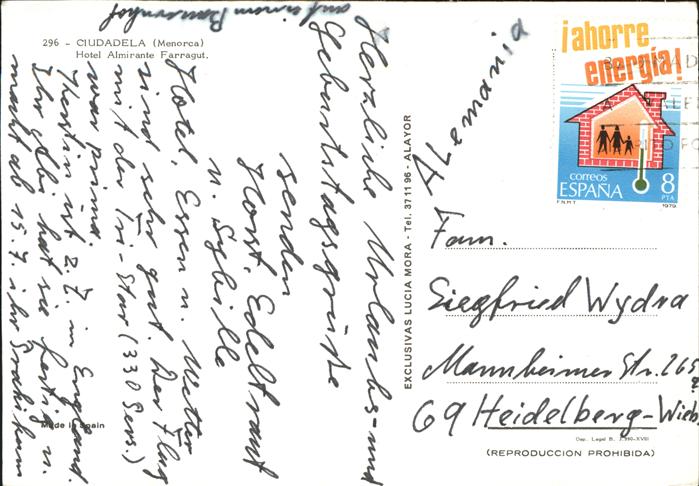 296 - CIUDADELA (Menorca)
Hotel Almirante Farragut.
Herzliche Urlaubs- und
Geburtstagsgrüße
senden
Horst, Edeltraut
u. Sybille
Hotel, Essen u. Wetter
sind sehr gut. Der Flug
mit der Tri-Star (330 Pers.)
war prima.
Kerstin ist z.Z. in England.
Ihr Abi hat sie fertig u.
macht ab 15.7. ihr Praktikum
auf einem Bauernhof
Made in Spain
EXCLUSIVAS LUCIA MORA - Tel. 37 11 96 - ALAYOR
¡ahorre
energía!
correos
ESPAÑA
8
PTA
F.N.M.T
1979
Alemania
Fam.
Siegfried Wydra
Mannheimer Str. 265
69 Heidelberg-Wieb
Dep. Legal B.
(REPRODUCCION PROHIBIDA)